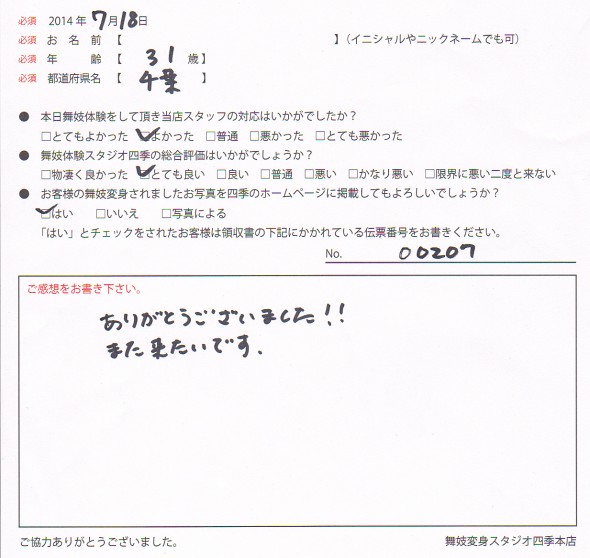 必須 2014年7月18日
必須 お名前【 】(イニシャルやニックネームでも可)
必須 年齢【 31 歳】
必須 都道府県名【 千葉 】
● 本日舞妓体験をして頂き当店スタッフの対応はいかがでしたか?
□とてもよかった ☑よかった □普通 □悪かった □とても悪かった
● 舞妓体験スタジオ四季の総合評価はいかがでしょうか?
□物凄く良かった ☑とても良い □良い □普通 □悪い □かなり悪い □限界に悪い二度と来ない
● お客様の舞妓変身されましたお写真を四季のホームページに掲載してもよろしいでしょうか?
☑はい □いいえ □写真による
「はい」とチェックをされたお客様は領収書の下記にかかれている伝票番号をお書きください。
No. 00207
ご感想をお書き下さい。
ありがとうございました!!
また来たいです.
ご協力ありがとうございました。 舞妓変身スタジオ四季本店